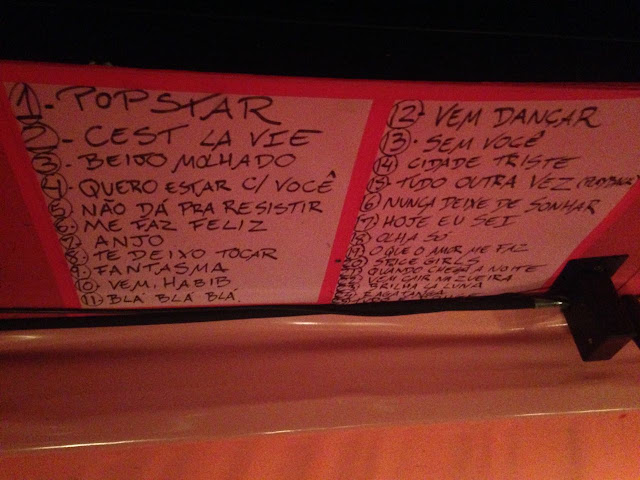 1- POPSTAR
2- CEST LA VIE
3- BEIJO MOLHADO
4- QUERO ESTAR C/ VOCÊ
5- NÃO DÁ PRA RESISTIR
6- ME FAZ FELIZ
7- ANJO
8- TE DEIXO TOCAR
9- FANTASMA
10- VEM, HABIB
11- BLÁ BLÁ BLÁ
12- VEM DANÇAR
13- SEM VOCÊ
14- CIDADE TRISTE
15- TUDO OUTRA VEZ (PLAYBACK)
16- NUNCA DEIXE DE SONHAR
17- HOJE EU SEI
18- OLHA SÓ
19- O QUE O AMOR ME FAZ
SPICE GIRLS
QUANDO CHEGA A NOITE
VEM CAIR NA ZUEIRA
BRILHA LA LUNA
RAGATANGA